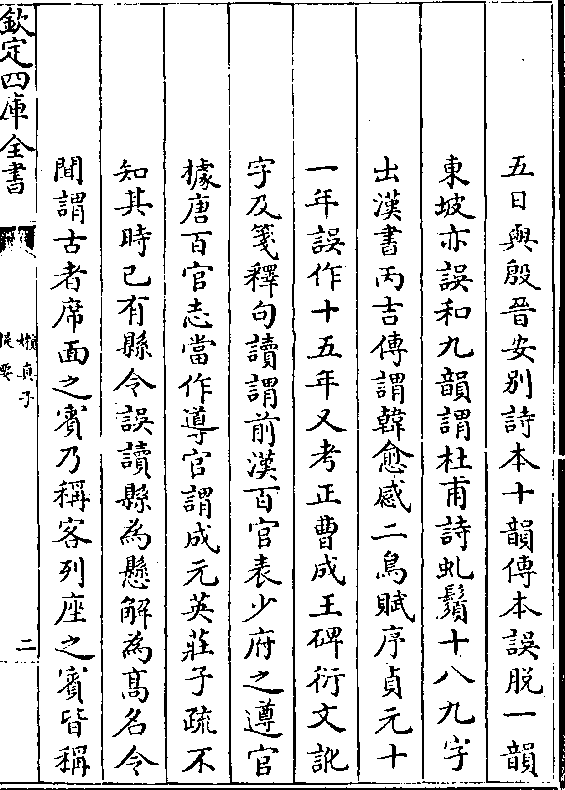 五日與殷晉安别詩本十韻傳本誤脱一韻
東坡亦誤和九韻謂杜甫詩虬鬚十八九字
出漢書丙吉傳謂韓愈感二鳥賦序貞元十
一年誤作十五年又考正曹成王碑衍文訛
字及箋釋句讀謂前漢百官表少府之遵官
據唐百官志當作導官謂成元英莊子疏不
知其時已有縣令誤讀縣為懸解為髙名令
聞謂古者席面之賓乃稱客列座之賓皆稱
欽定四庫全書
嬾真子
提要
二